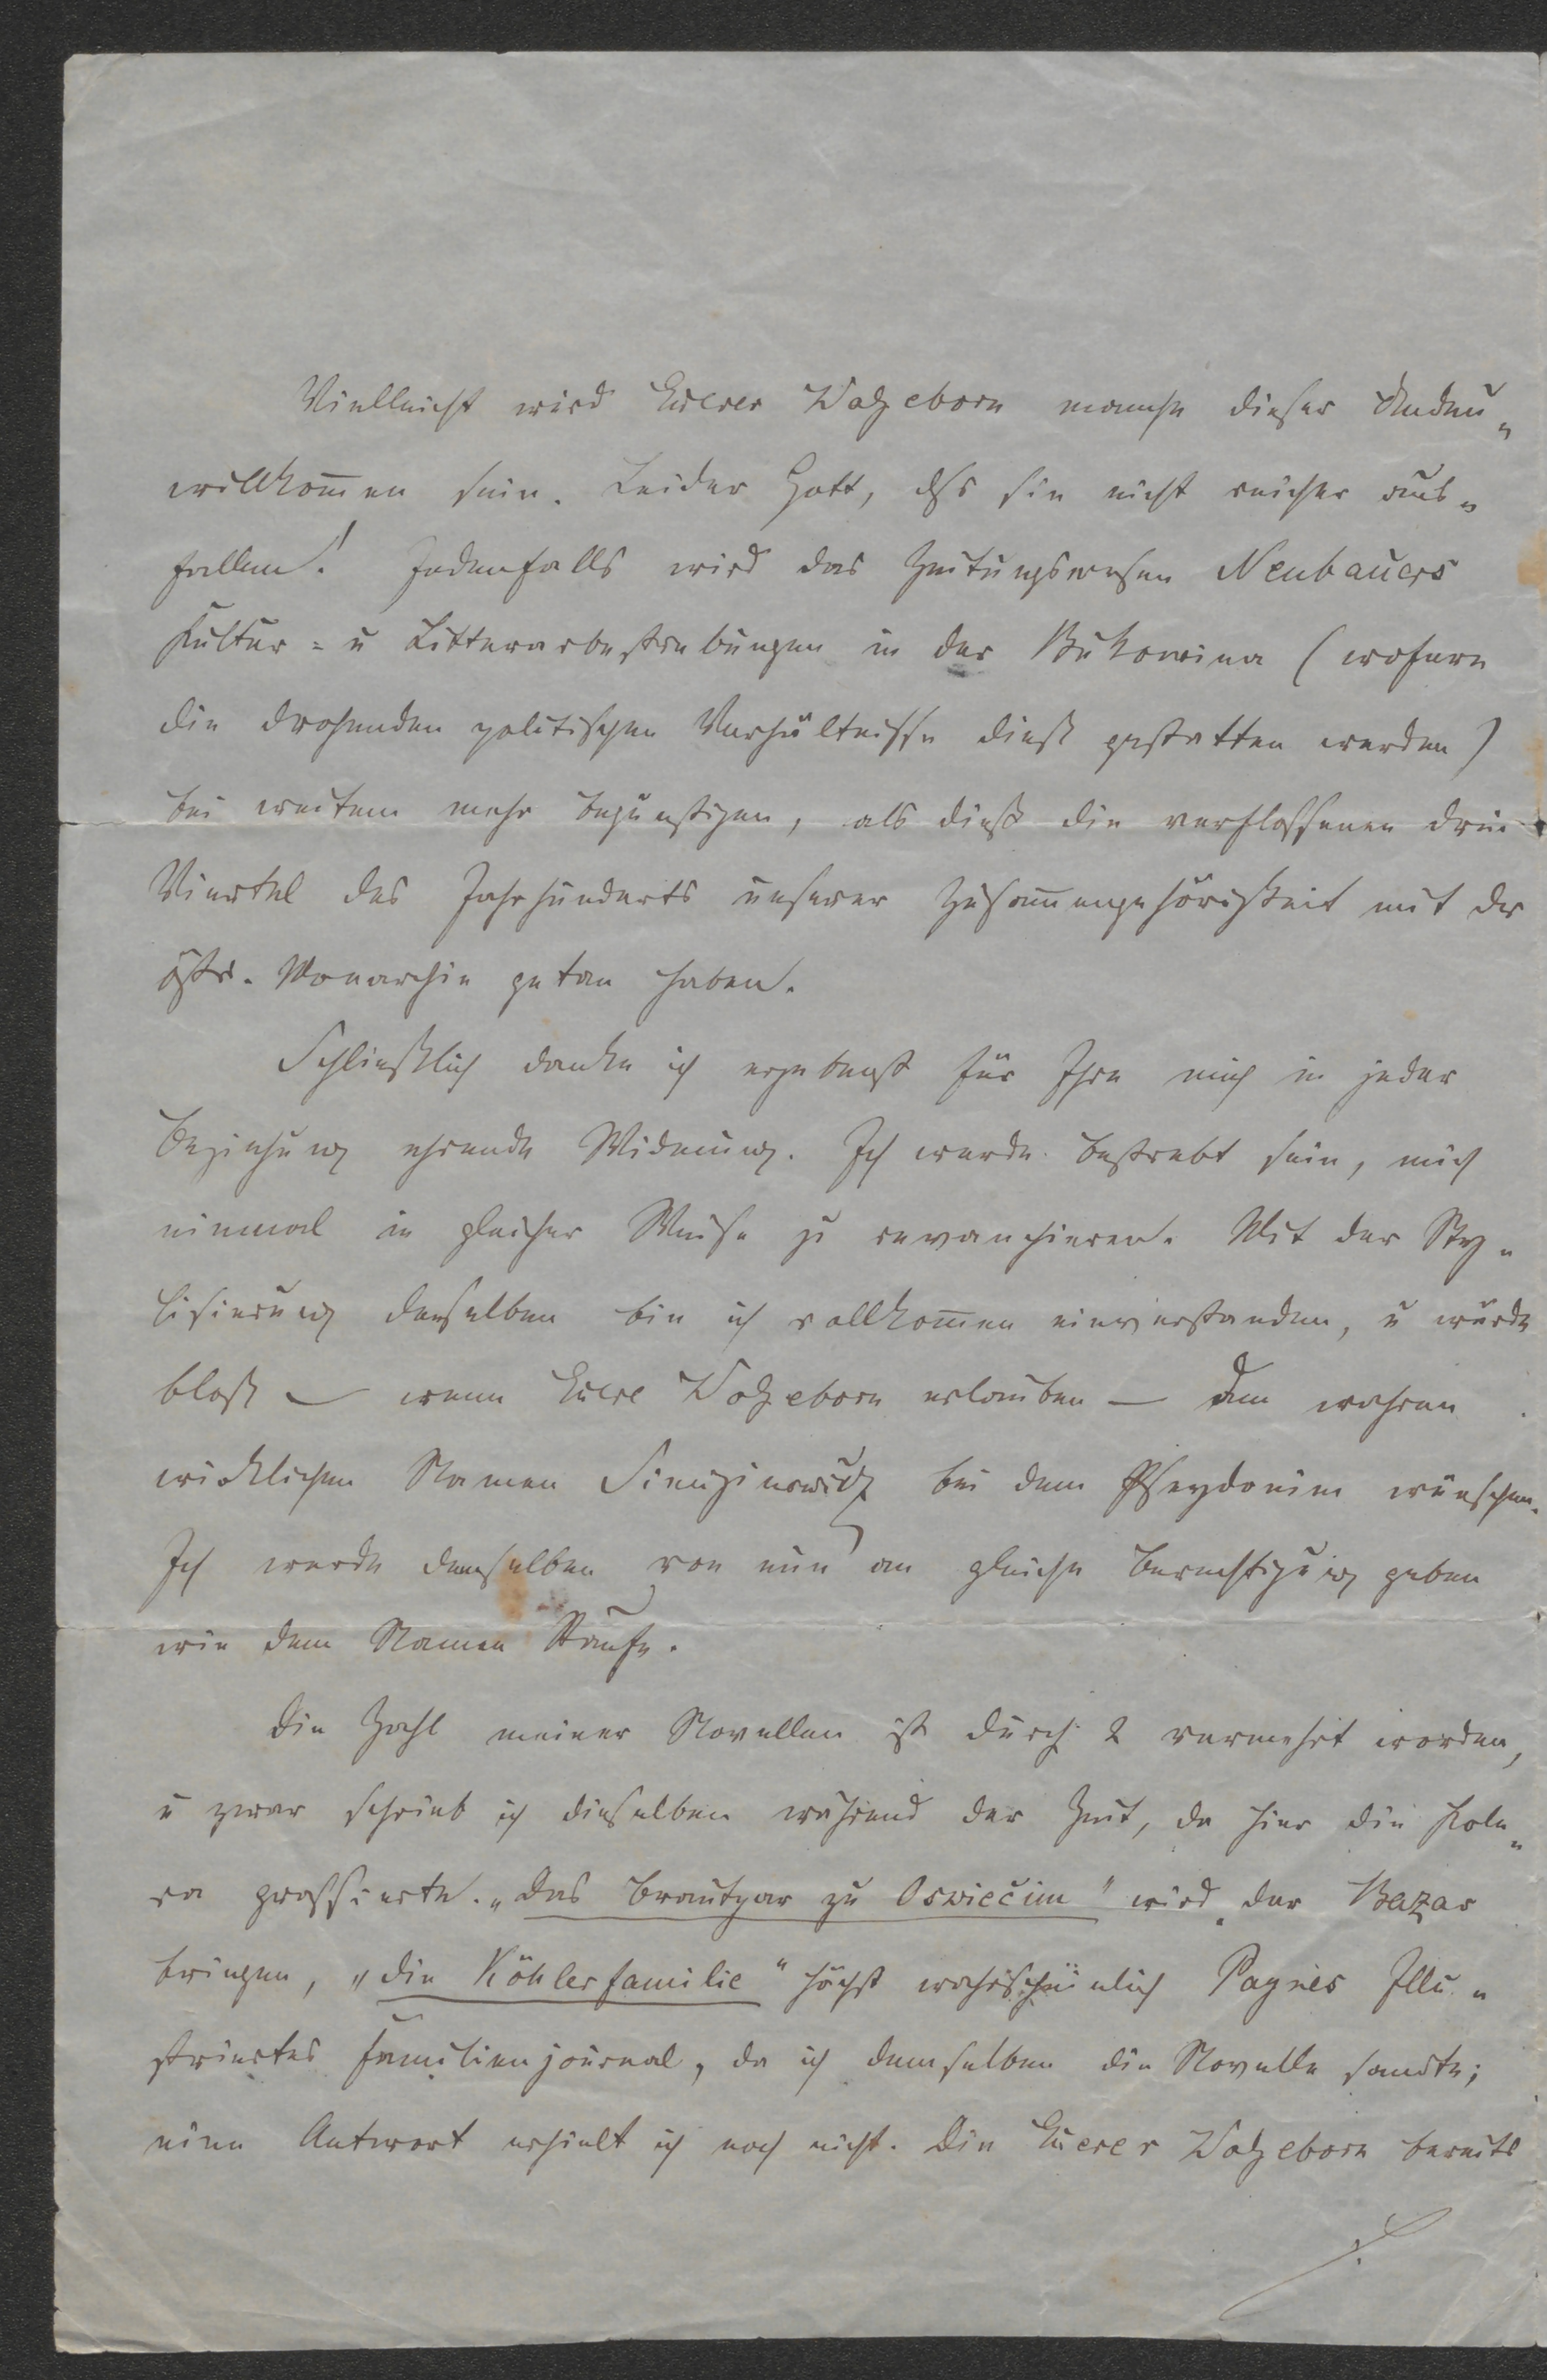 Vielleicht wird Euerer Wolgeborn manche dieser Andeu„
willkom̄en sein. Leider Gott, dſs sie nicht reicher aus„
fallen! Jedenfalls wird das Zeitungswesen Neubauers
Kultur= u Litterarbestrebungen in der Bukowina (wofern
die drohenden politischen Verhältnisse dieß gestatten werden)
bei weitem mehr begünstigen, als dieß die verflossenen drei
Viertel des Jahrhunderts unserer Zusam̄engehörigkeit mit der
östr. Monarchie getan haben.
Schließlich danke ich ergebenst für Ihre mich in jeder
Beziehung ehrende Widmung. Ich werde bestrebt sein, mich
einmal in gleicher Weise zu revanchieren. Mit der Sty„
lisierung derselben bin ich vollkom̄en einverstanden, u würde
bloß — wenn Euere Wolgeborn erlauben — den wahren
wirklichen Namen Simiginowicz bei dem Pseydonim wünschen.
Ich werde demselben von nun an gleiche Berechtigung geben
wie dem Namen Staufe.
Die Zahl meiner Novellen ist durch 2 vermehrt worden,
u zwar schrieb ich dieselben während der Zeit, da hier die Kole„
ra grassierte. „Das Brautpar zu Oswiečim" wird der Bazar
bringen, „die Köhlerfamilie" höchst wahrscheinlich Paynes Illu„
striertes Familienjournal, da ich demselben die Novelle sandte;
eine Antwort erhielt ich noch nicht. Die Euerer Wolgeborn bereits